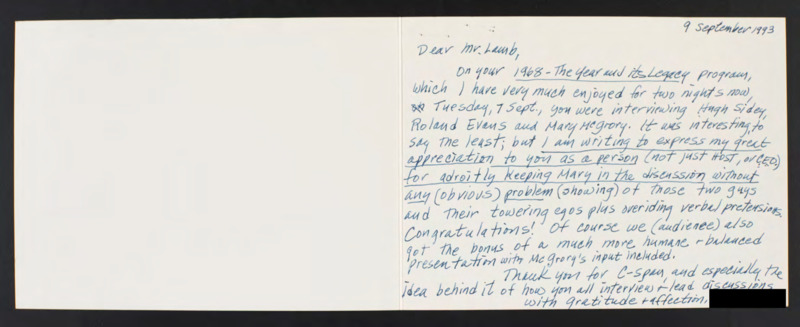 9 September 1993
Dear Mr. Lamb,
On your 1968 - The Year and its Legacy program,
which I have very much enjoyed for two nights now,
Tuesday, 7 Sept., you were interviewing Hugh Sidey,
Roland Evans and Mary McGrory. It was interesting, to
say the least; but I am writing to express my great
appreciation to you as a person (not just host, or CEO,)
for adroitly keeping Mary in the discussion without
any (obvious) problem (showing) of those two guys
and their towering egos plus overiding verbal pretensions.
Congratulations! Of course we (audience) also
got the bonus of a much more humane + balanced
presentation with McGrory's input included.
Thank you for C-span, and especially the
idea behind it of how you all interview + lead discussions
with gratitude + affection,